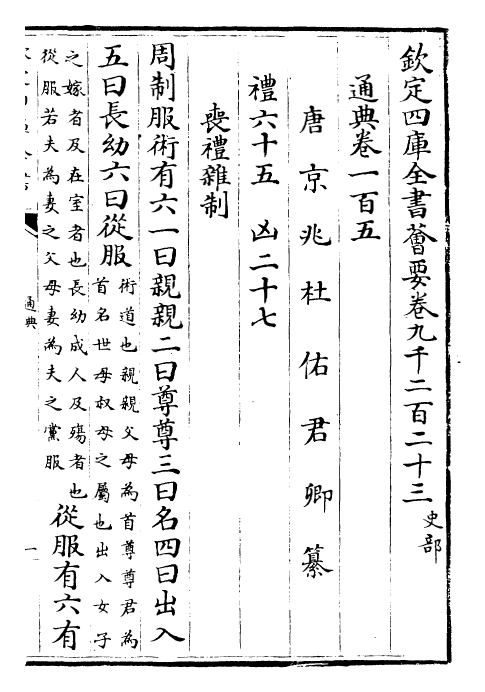 欽定四庫全書薈要卷九千二百二十三 史部
通典卷一百五
唐京兆杜佑君卿纂
禮六十五 凶二十七
喪禮雜制
周制服術有六一曰親親二曰尊尊三曰名四曰出入
五曰長幼六曰從服 術道也親親父母為首尊尊君為首名世母叔母之屬也出入女子
之嫁者及在室者也長幼成人及殤者也從服若夫為妻之父母妻為夫之黨服 從服有六有
通典
一